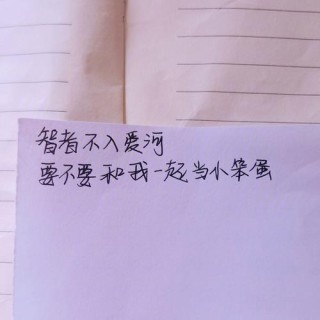 智者不入爱河
要不要和我一起当小笨蛋